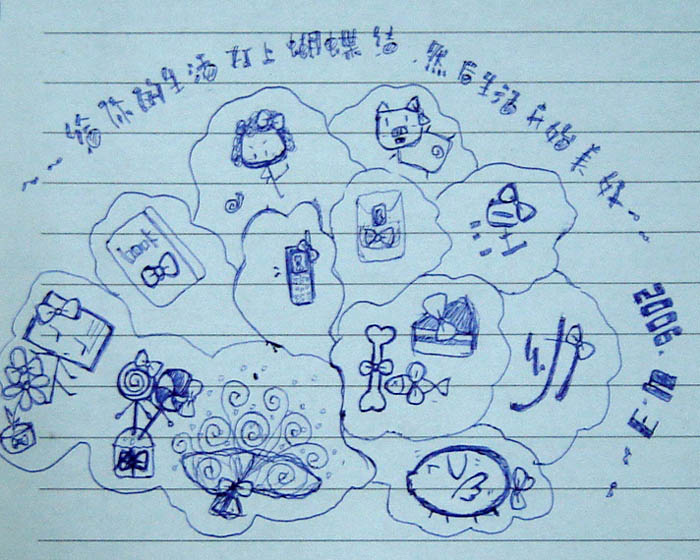 ~~给你的生活打上蝴蝶结.然后生活开始美好~~
2006.E.M
book